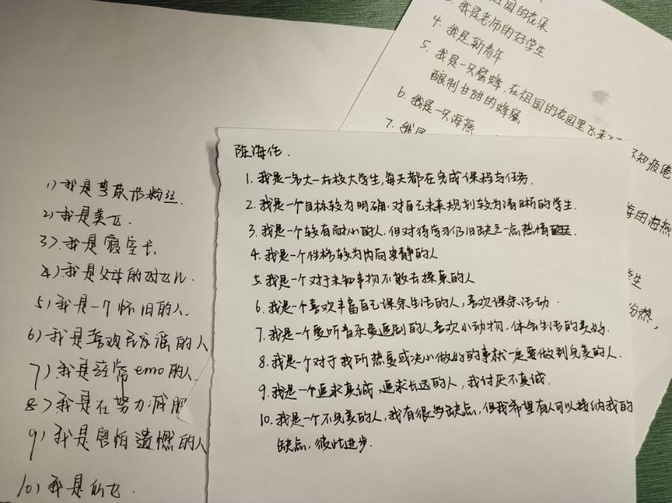 我是老师的好学生
4. 我是新青年
5. 我是一只蜜蜂,在祖国的花园里飞来
酿制甘甜的蜂蜜
6. 我是一只海燕
7. 我是
不知疲倦
的海燕
学生
1) 我是
2) 我是美
3) 我是寝室长
4) 我是父母的
5) 我是一个怀旧的人.
6) 我是喜欢民谣的人
7) 我是经常emo的人.
8) 我是在努力减肥
9) 我是害怕遗憾的人
10) 我是
陈海
1. 我是一名大一在校大学生,每天都在完成课程与任务.
2. 我是一个目标较为明确,对自己未来规划较为清晰的学生.
3. 我是一个较有耐心的人,但对待学习仍旧缺乏一点热情
4. 我是一个性格较为内向安静的人
5. 我是一个对于未知事物不敢去探索的人
6. 我是一个喜欢丰富自己课余生活的人,喜欢课余活动
7. 我是一个爱听音乐爱追剧的人,喜欢小动物,体会生活的美好.
8. 我是一个对于我所热爱或决心做好的事就一定要做到完美的人.
9. 我是一个追求真诚,追求长远的人,我讨厌不真诚.
10. 我是一个不完美的人,我有很多缺点,但我希望有人可以接纳我的
缺点,彼此进步.